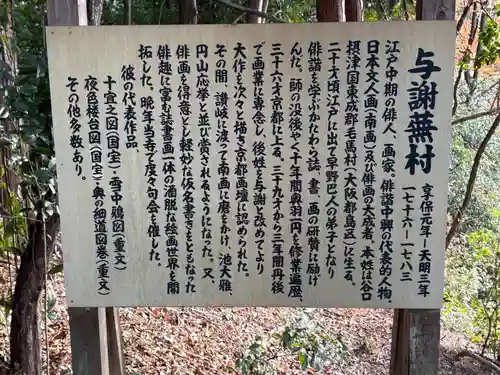 与謝蕪村
享保元年―天明三年
一七一六―一七八三
江戸中期の俳人、画家。俳諧中興の代表的人物、
日本文人画(南画)及び俳画の大成者、本姓は谷口
摂津国東成郡毛馬村(大阪都島区)に生る。
二十才頃江戸に出て早野巴人の弟子となり
俳諧を学ぶかたわら詩、書、画の研賛に励げ
んだ。師の没後やく十年間奥羽一円を修業遍歴、
三十六才京都に上る。三十九才から三年間丹後
で画業に専念し、後姓を与謝と改めてより
大作を次々と描き京都画壇に認められた。
その間、讃岐に渡って南画に磨をかけ、池大雅、
円山応挙と並び賞されるようになった。又、
俳画を得意とし軽妙な仮名書きともなった
俳趣に富む詩書画一体の洒脱な絵画世界を開
拓した。晩年当寺で度々句会を催した。
彼の代表作品。
十宜之図(国宝)・雪中鴉図(重文)
夜色楼台図(国宝)・奥の細道図巻(重文)
その他多数あり。